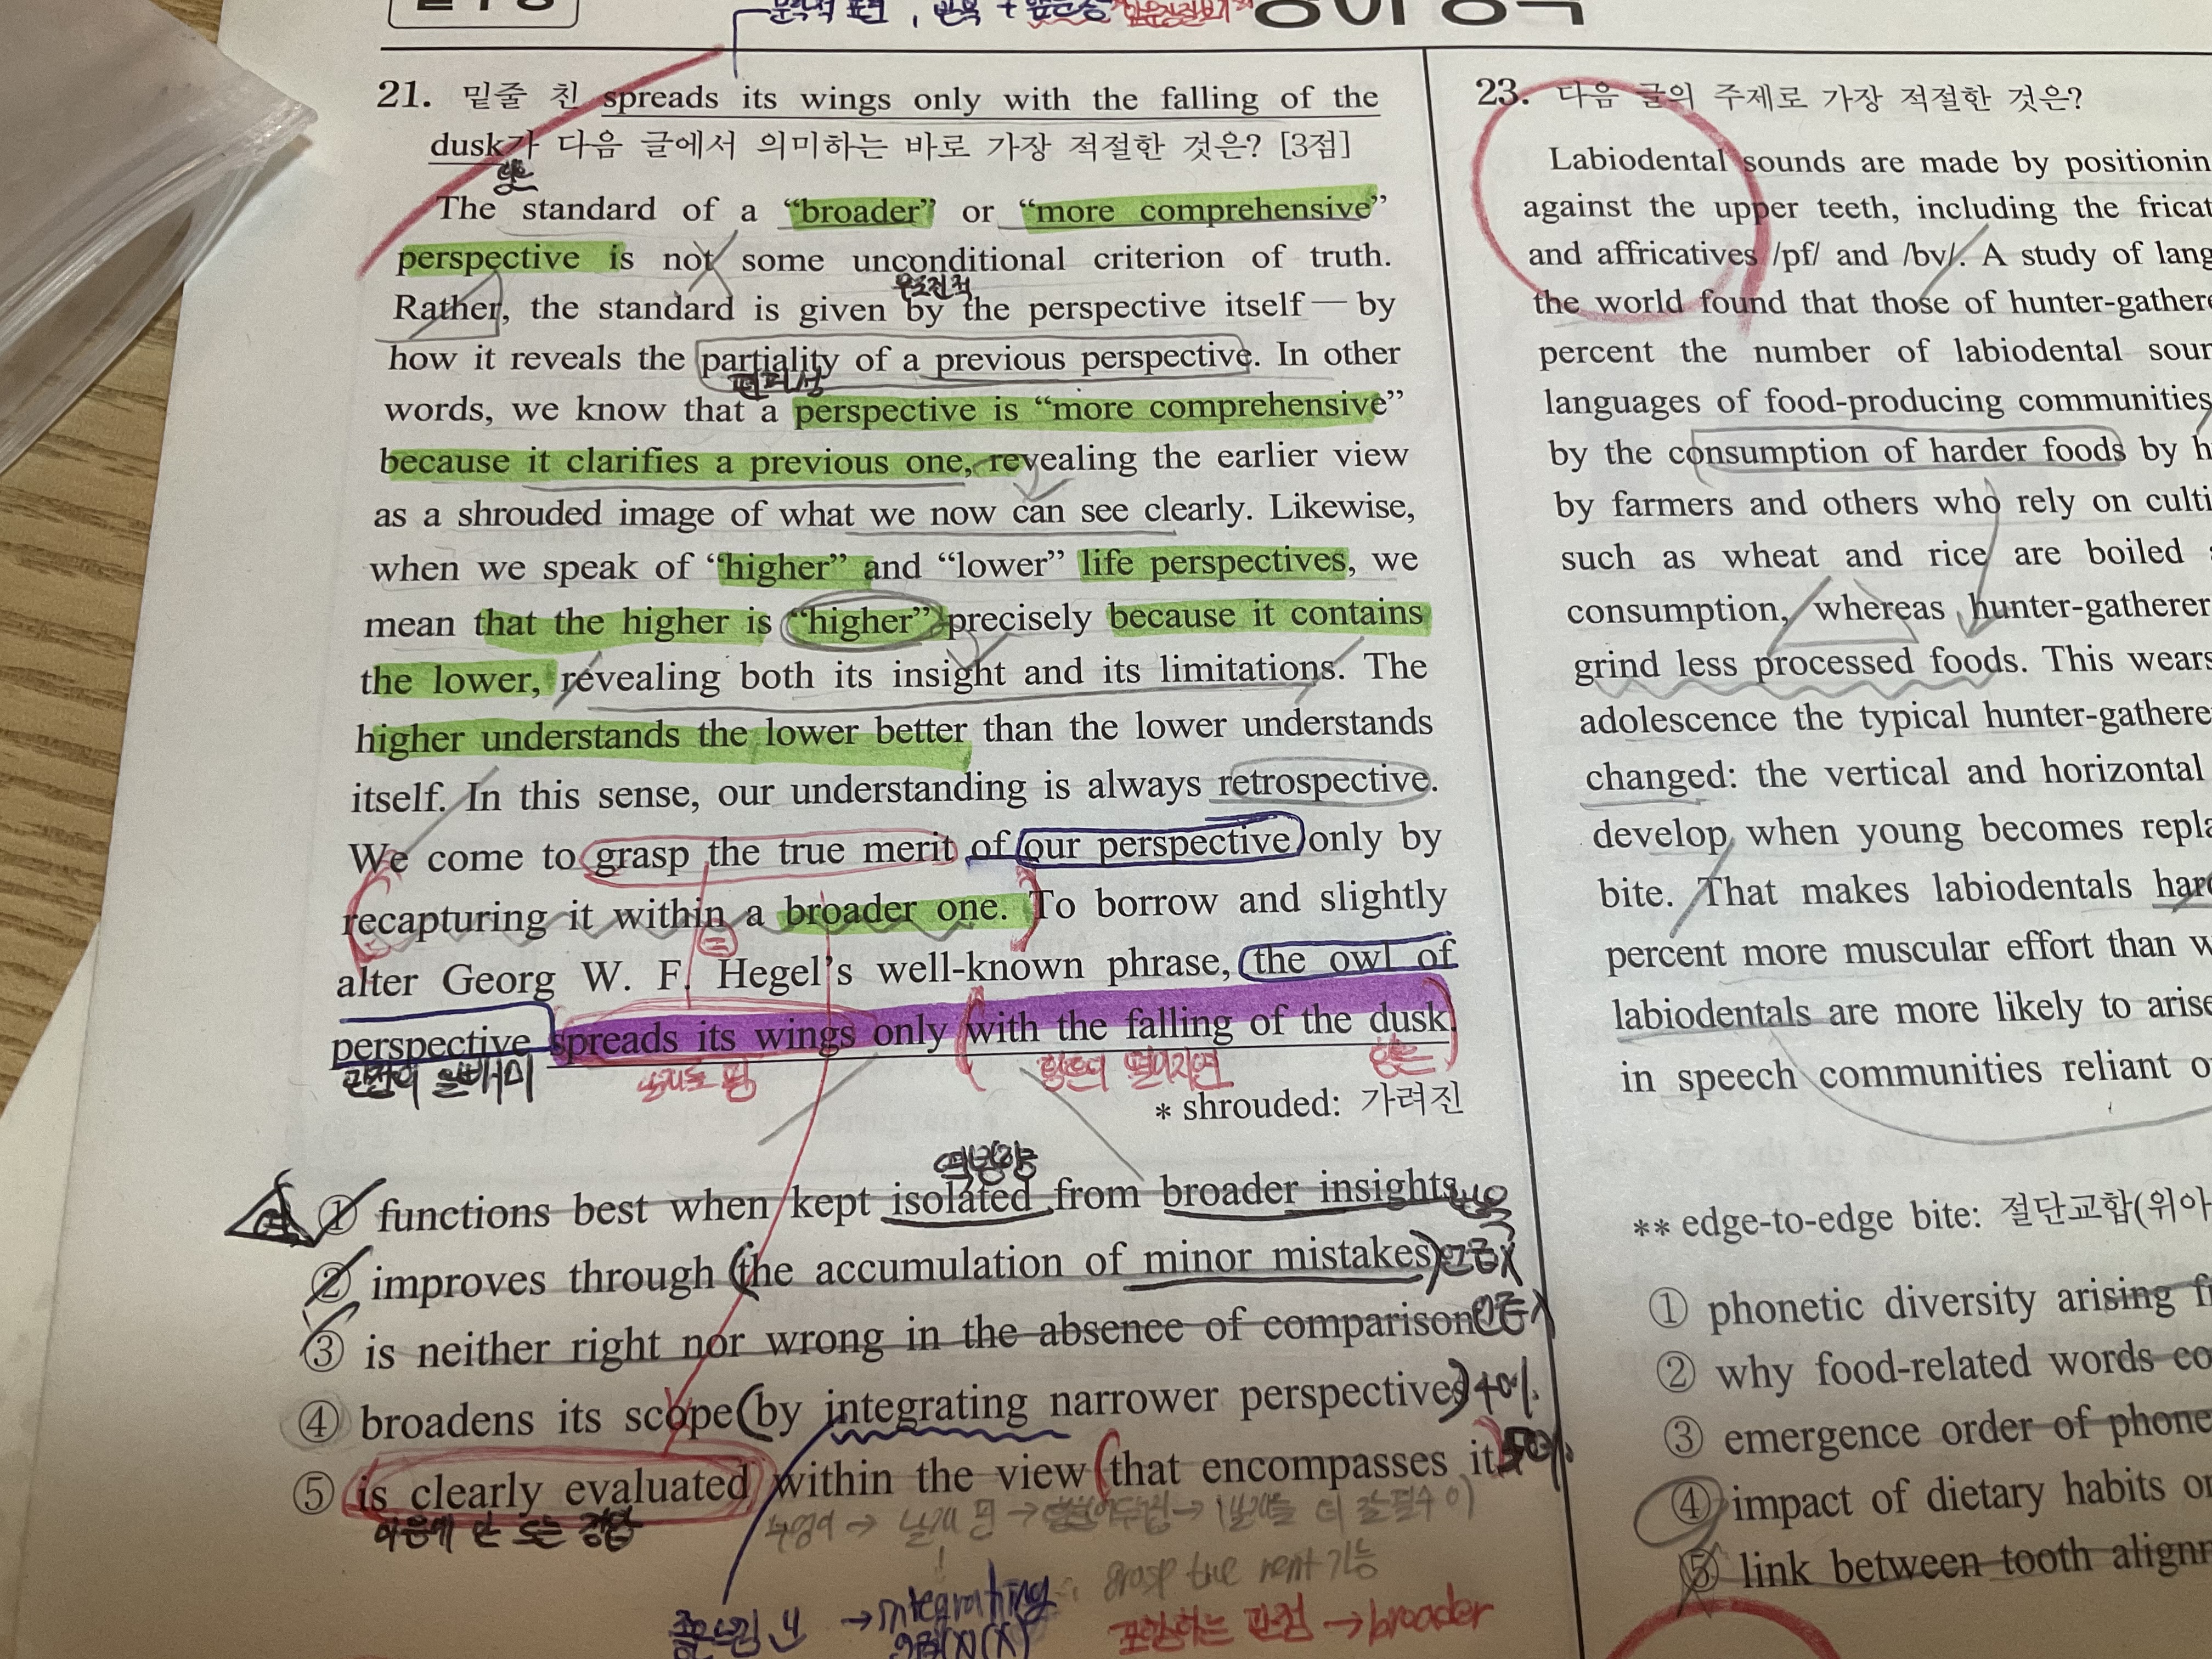 21. 밑줄 친 spreads its wings only with the falling of the
dusk가 다음 글에서 의미하는 바로 가장 적절한 것은? [3점]
The standard of a “broader” or “more comprehensive”
perspective is not some unconditional criterion of truth.
무조건적
Rather, the standard is given by the perspective itself — by
how it reveals the partiality of a previous perspective. In other
편파성
words, we know that a perspective is “more comprehensive”
because it clarifies a previous one, revealing the earlier view
as a shrouded image of what we now can see clearly. Likewise,
when we speak of “higher” and “lower” life perspectives, we
mean that the higher is “higher” precisely because it contains
the lower, revealing both its insight and its limitations. The
higher understands the lower better than the lower understands
itself. In this sense, our understanding is always retrospective.
We come to grasp the true merit of our perspective only by
recapturing it within a broader one. To borrow and slightly
alter Georg W. F. Hegel’s well-known phrase, the owl of
perspective spreads its wings only with the falling of the dusk.
관점의 올빼미
* shrouded: 가려진
역방향
① functions best when kept isolated from broader insights
② improves through the accumulation of minor mistakes 언급X
③ is neither right nor wrong in the absence of comparison 언급X
④ broadens its scope by integrating narrower perspectives 40%
⑤ is clearly evaluated within the view that encompasses it 50%
마음에 안 드는 정답
grasp the merit 가능
→ integrating
포함하는 관점 → broader
23. 다음 글의 주제로 가장 적절한 것은?
Labiodental sounds are made by
against the upper teeth, including the
and affricatives /pf/ and /bv/. A study of
the world found that those of
percent the number of labiodental
languages of food-producing communities
by the consumption of harder foods by
by farmers and others who rely on
such as wheat and rice are boiled
consumption, whereas
grind less processed foods. This
adolescence the typical
changed: the vertical and horizontal
develop when young becomes
bite. That makes labiodentals
percent more muscular effort than
labiodentals are more likely to
in speech communities reliant
** edge-to-edge bite: 절단교합
① phonetic diversity arising
② why food-related words
③ emergence order of
④ impact of dietary habits
⑤ link between tooth